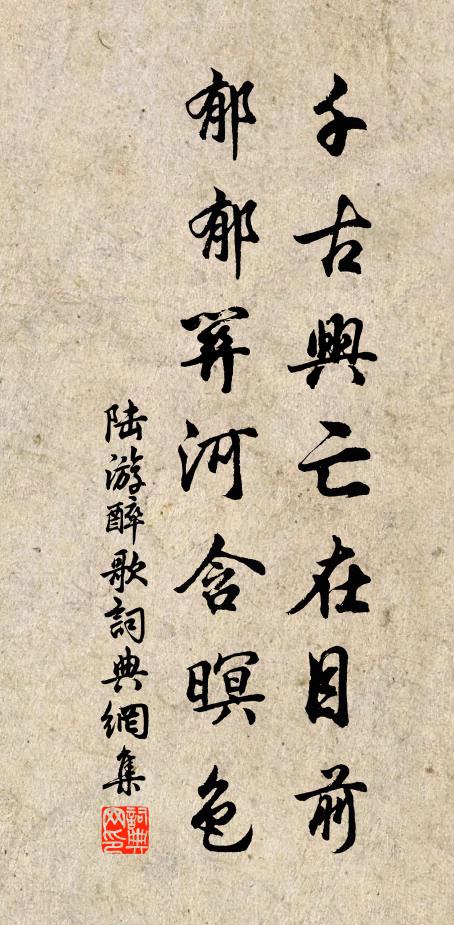 千古興亡在目前
郁郁關河含暝色
陸游醉歌詞典網集
詞典网印